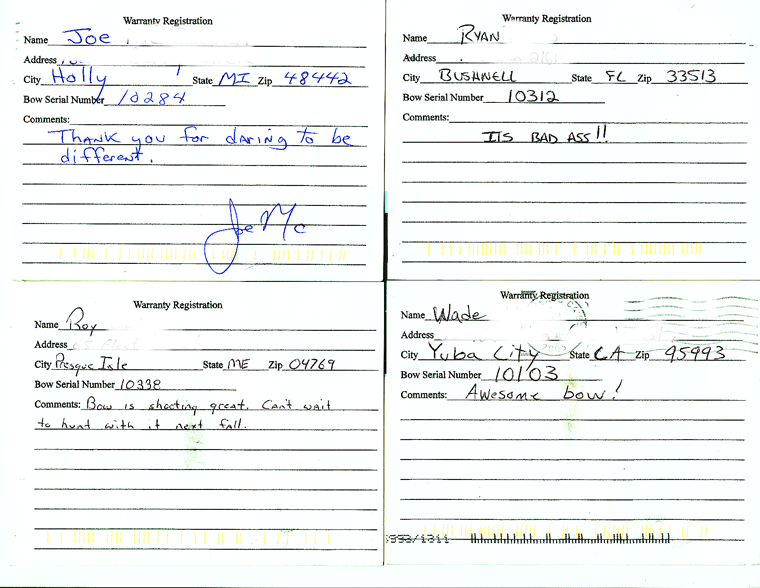 Warranty Registration
Name Joe
Address
City Holly State MI Zip 48442
Bow Serial Number 10284
Comments:
Thank you for daring to be
different.
Joe Mc
Warranty Registration
Name Ryan
Address
City Bushnell State FL Zip 33513
Bow Serial Number 10312
Comments:
ITS BAD ASS!!
Warranty Registration
Name Roy
Address
City Presque Isle State ME Zip 04769
Bow Serial Number 10338
Comments: Bow is shooting great. Can't wait
to hunt with it next fall.
Warranty Registration
Name Wade
Address
City Yuba City State CA Zip 95993
Bow Serial Number 10103
Comments: Awesome bow!